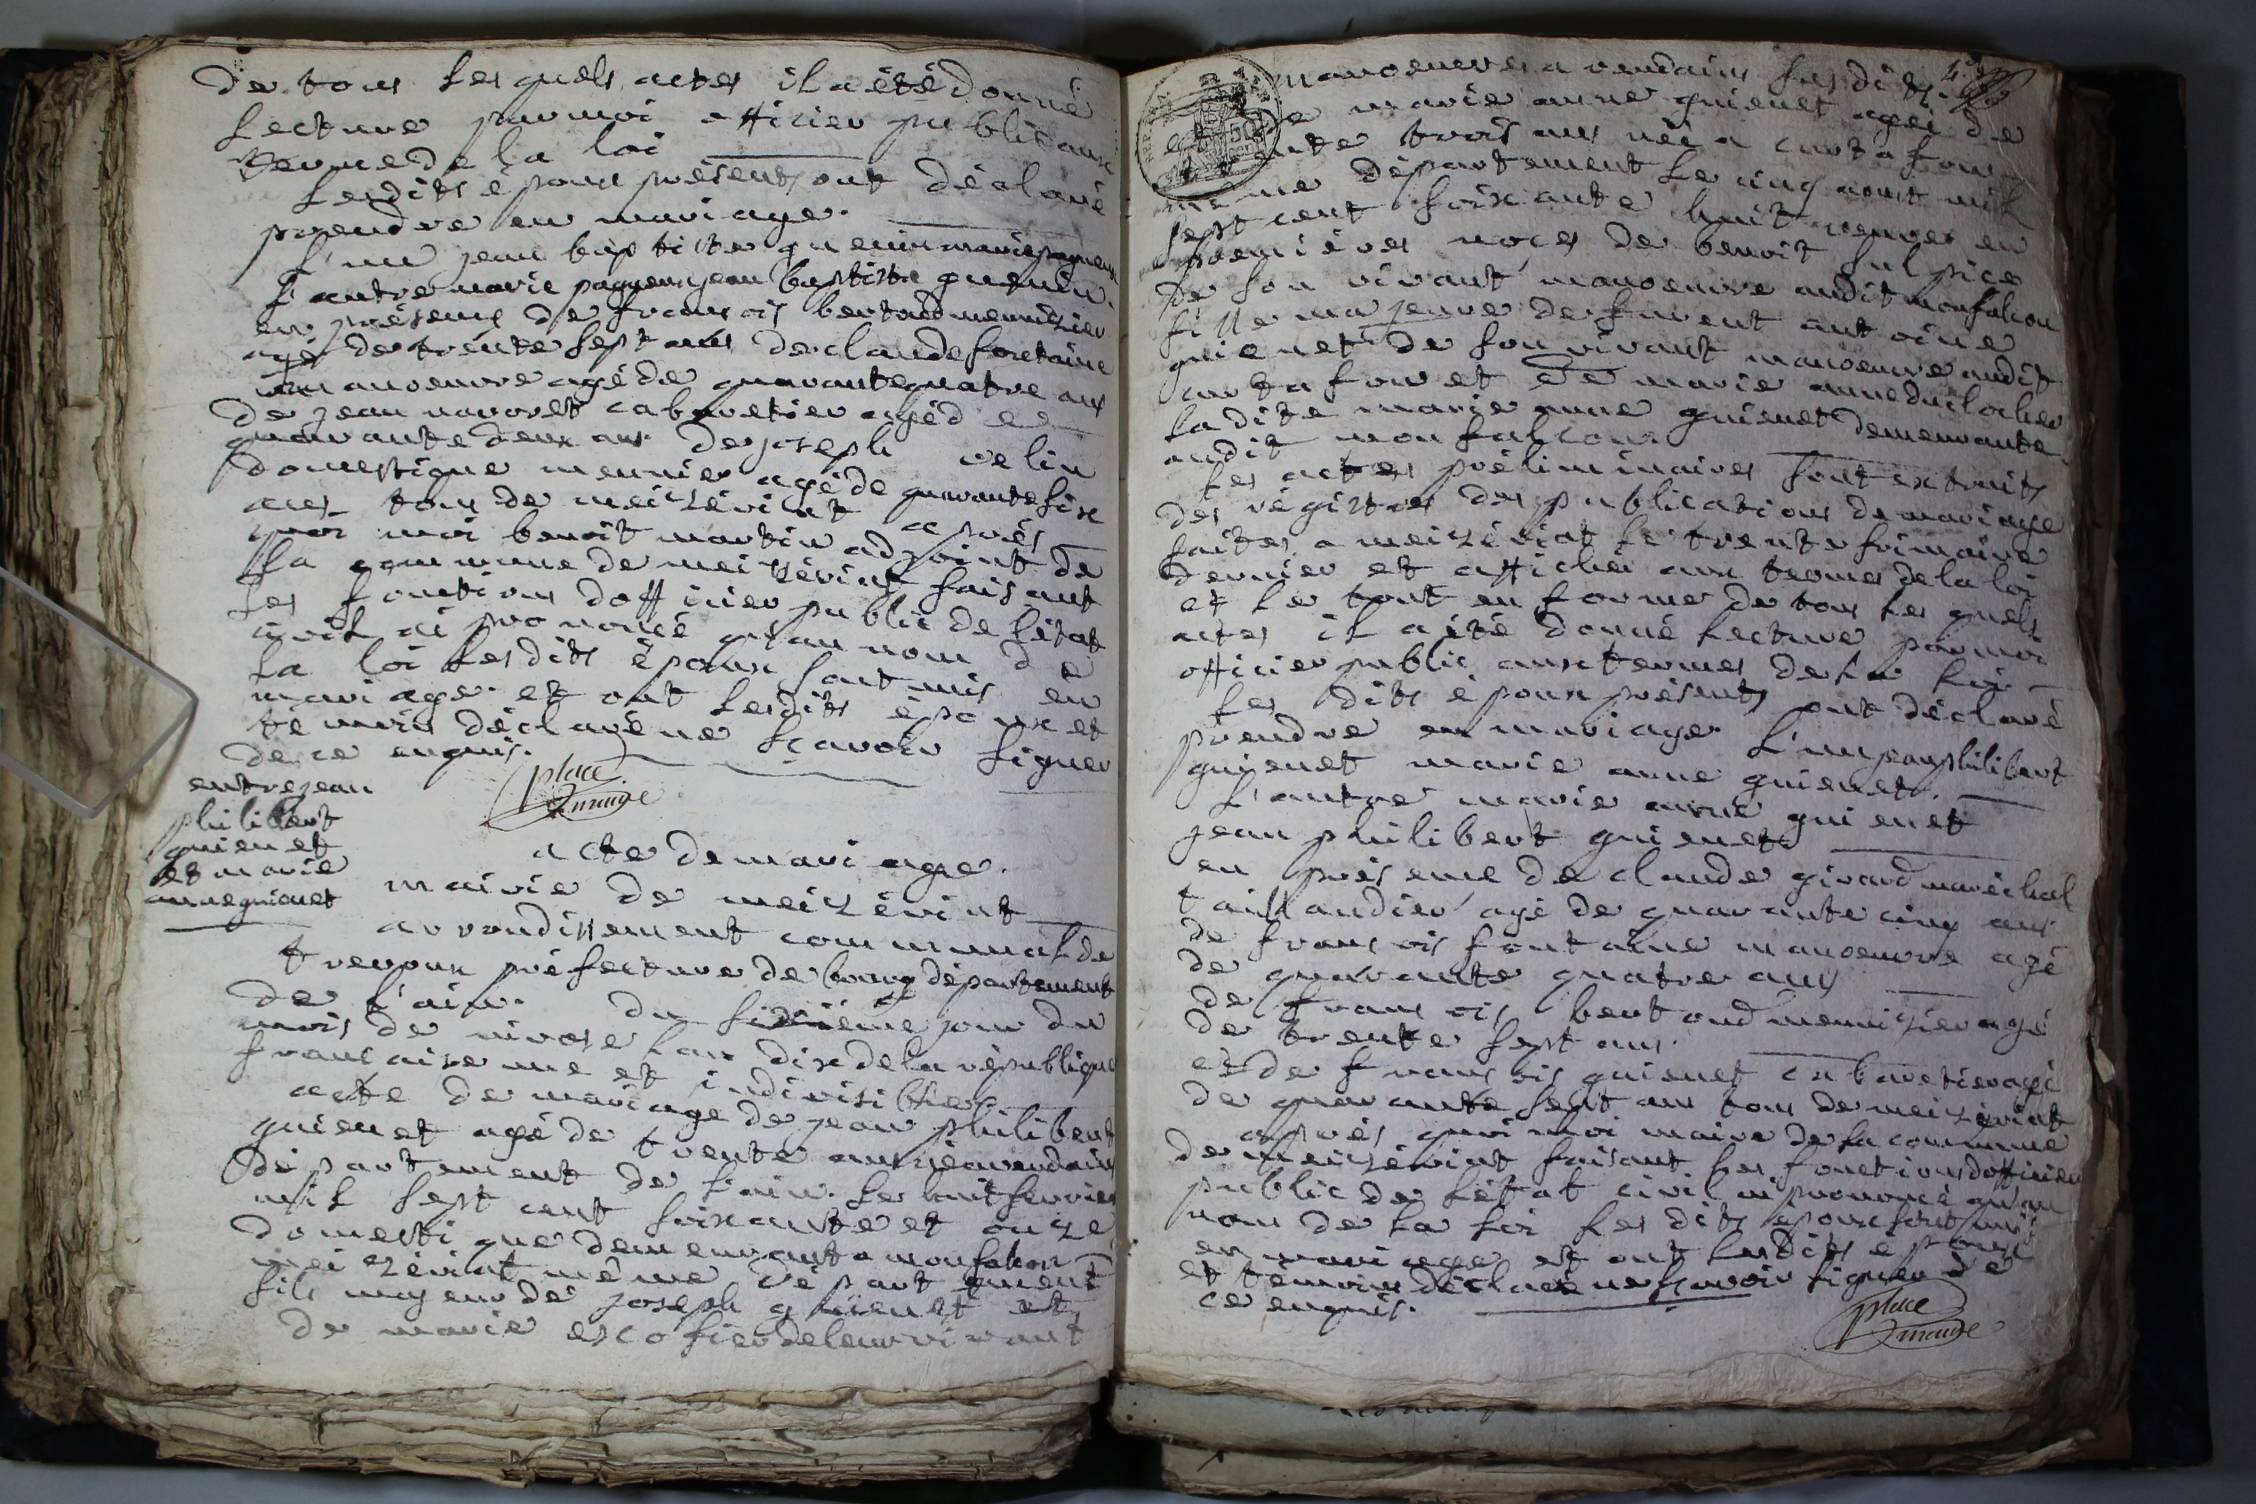 de tous lesquels actes il a été donné
lecture par moi officier public aux
terme de la loi
lesdits époux présents ont déclaré
prendre en mariage.
l'un jean baptiste guenin marie paguenu
l'autre marie paguenu jean baptiste guenin.
en présence de francois bertoud menuisier
agé de trente sept ans de claude fontaine
manoeuvre agé de quarante quatre ans
de jean navoret cabaretier agé de
quarante deux ans de joseph velin
domestique meunier agé de quarante six
ans tous de meizériat après
quoi moi benoit martin adjoint de
la commune de meizériat faisant
les fonctions dofficier public de létat
civil ai prononcé qu'au nom de
la loi lesdits époux sont unis en
mariage et ont lesdits époux et
témoins déclaré ne scavoir signer
de ce enquis.
place
maire
entre jean
philibert
guienet
et marie
anne guienet
acte de mariage.
mairie de meizériat
arrondissement communal de
trevoux préfecture de bourg département
de l'ain. du sixiéme jour du
mois de nivose lan dix de la république
francaise une et indivisible
acte de mariage de jean philibert
guienet agé de trente ans né a vendains
département de l'ain. le huit fevrier
mil sept cent soixante et onze
domestique demeurant a monfalcon
meizériat même département
fils majeur de joseph guienet et
de marie escofier de leur vivant
manoeuvres a vendains susdits.
marie anne guienet agée de
trente trois ans née a curtafon
même département le cinq aout mil
sept cent soixante huit veuve en
premiéres noces de benoit sulpice
de son vivant manoeuvre audit monfalcon
fille majeure de furent antoine
guienet de son vivant manoeuvre audit
curtafon et de marie anne duclocher
ladite marie anne guienet demeurante
audit monfalcon.
les actes préliminaires sont extraits
des régistres des publications de mariage
faites a meizériat le trente frimaire
dernier et affiché aux termes de la loi
et le tout en forme de tous les quels
actes il a été donné lecture par moi
officier public aux termes de la loi
les dits époux présents ont déclaré
prendre en mariage l'un jean philibert
guienet marie anne guienet.
l'autre marie anne guienet
jean philibert guienet
en présence de claude girard maréchal
taillandier agé de quarante cinq ans
de francois fontaine manoeuvre agé
de quarante quatre ans
de francois bertoud menuisier agé
de trente sept ans.
et de francois guienet cabaretier agé
de quarante sept ans tous de meizériat
après quoi moi maire de la commune
de meizériat faisant les fonctions dofficier
public de létat civil ai prononcé qu'au
nom de la loi les dits époux sont unis
en mariage et ont lesdits époux
et témoins déclaré ne scavoir signer de
ce enquis.
place
maire